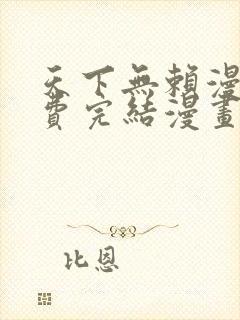 天下無賴漫
費完結漫畫
比恩